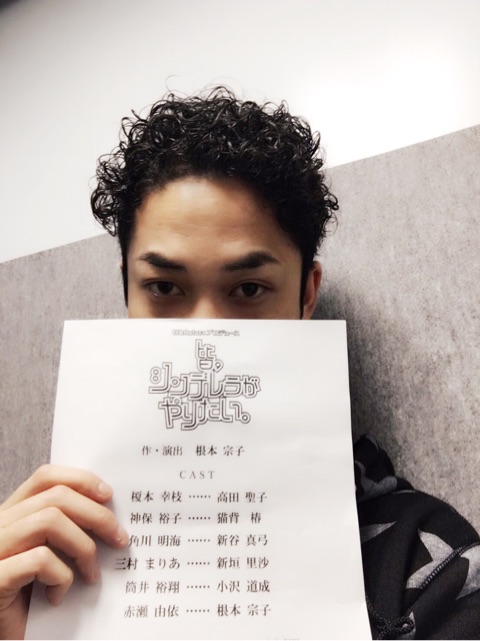 皆、
シンデレラが
やりたい。
作・演出 根本 宗子
CAST
榎本 幸枝 …… 高田 聖子
神保 裕子 …… 猫背 椿
角川 明海 …… 新谷 真弓
三村 まりあ …… 新垣 里沙
筒井 裕翔 …… 小沢 道成
赤瀬 由依 …… 根本 宗子